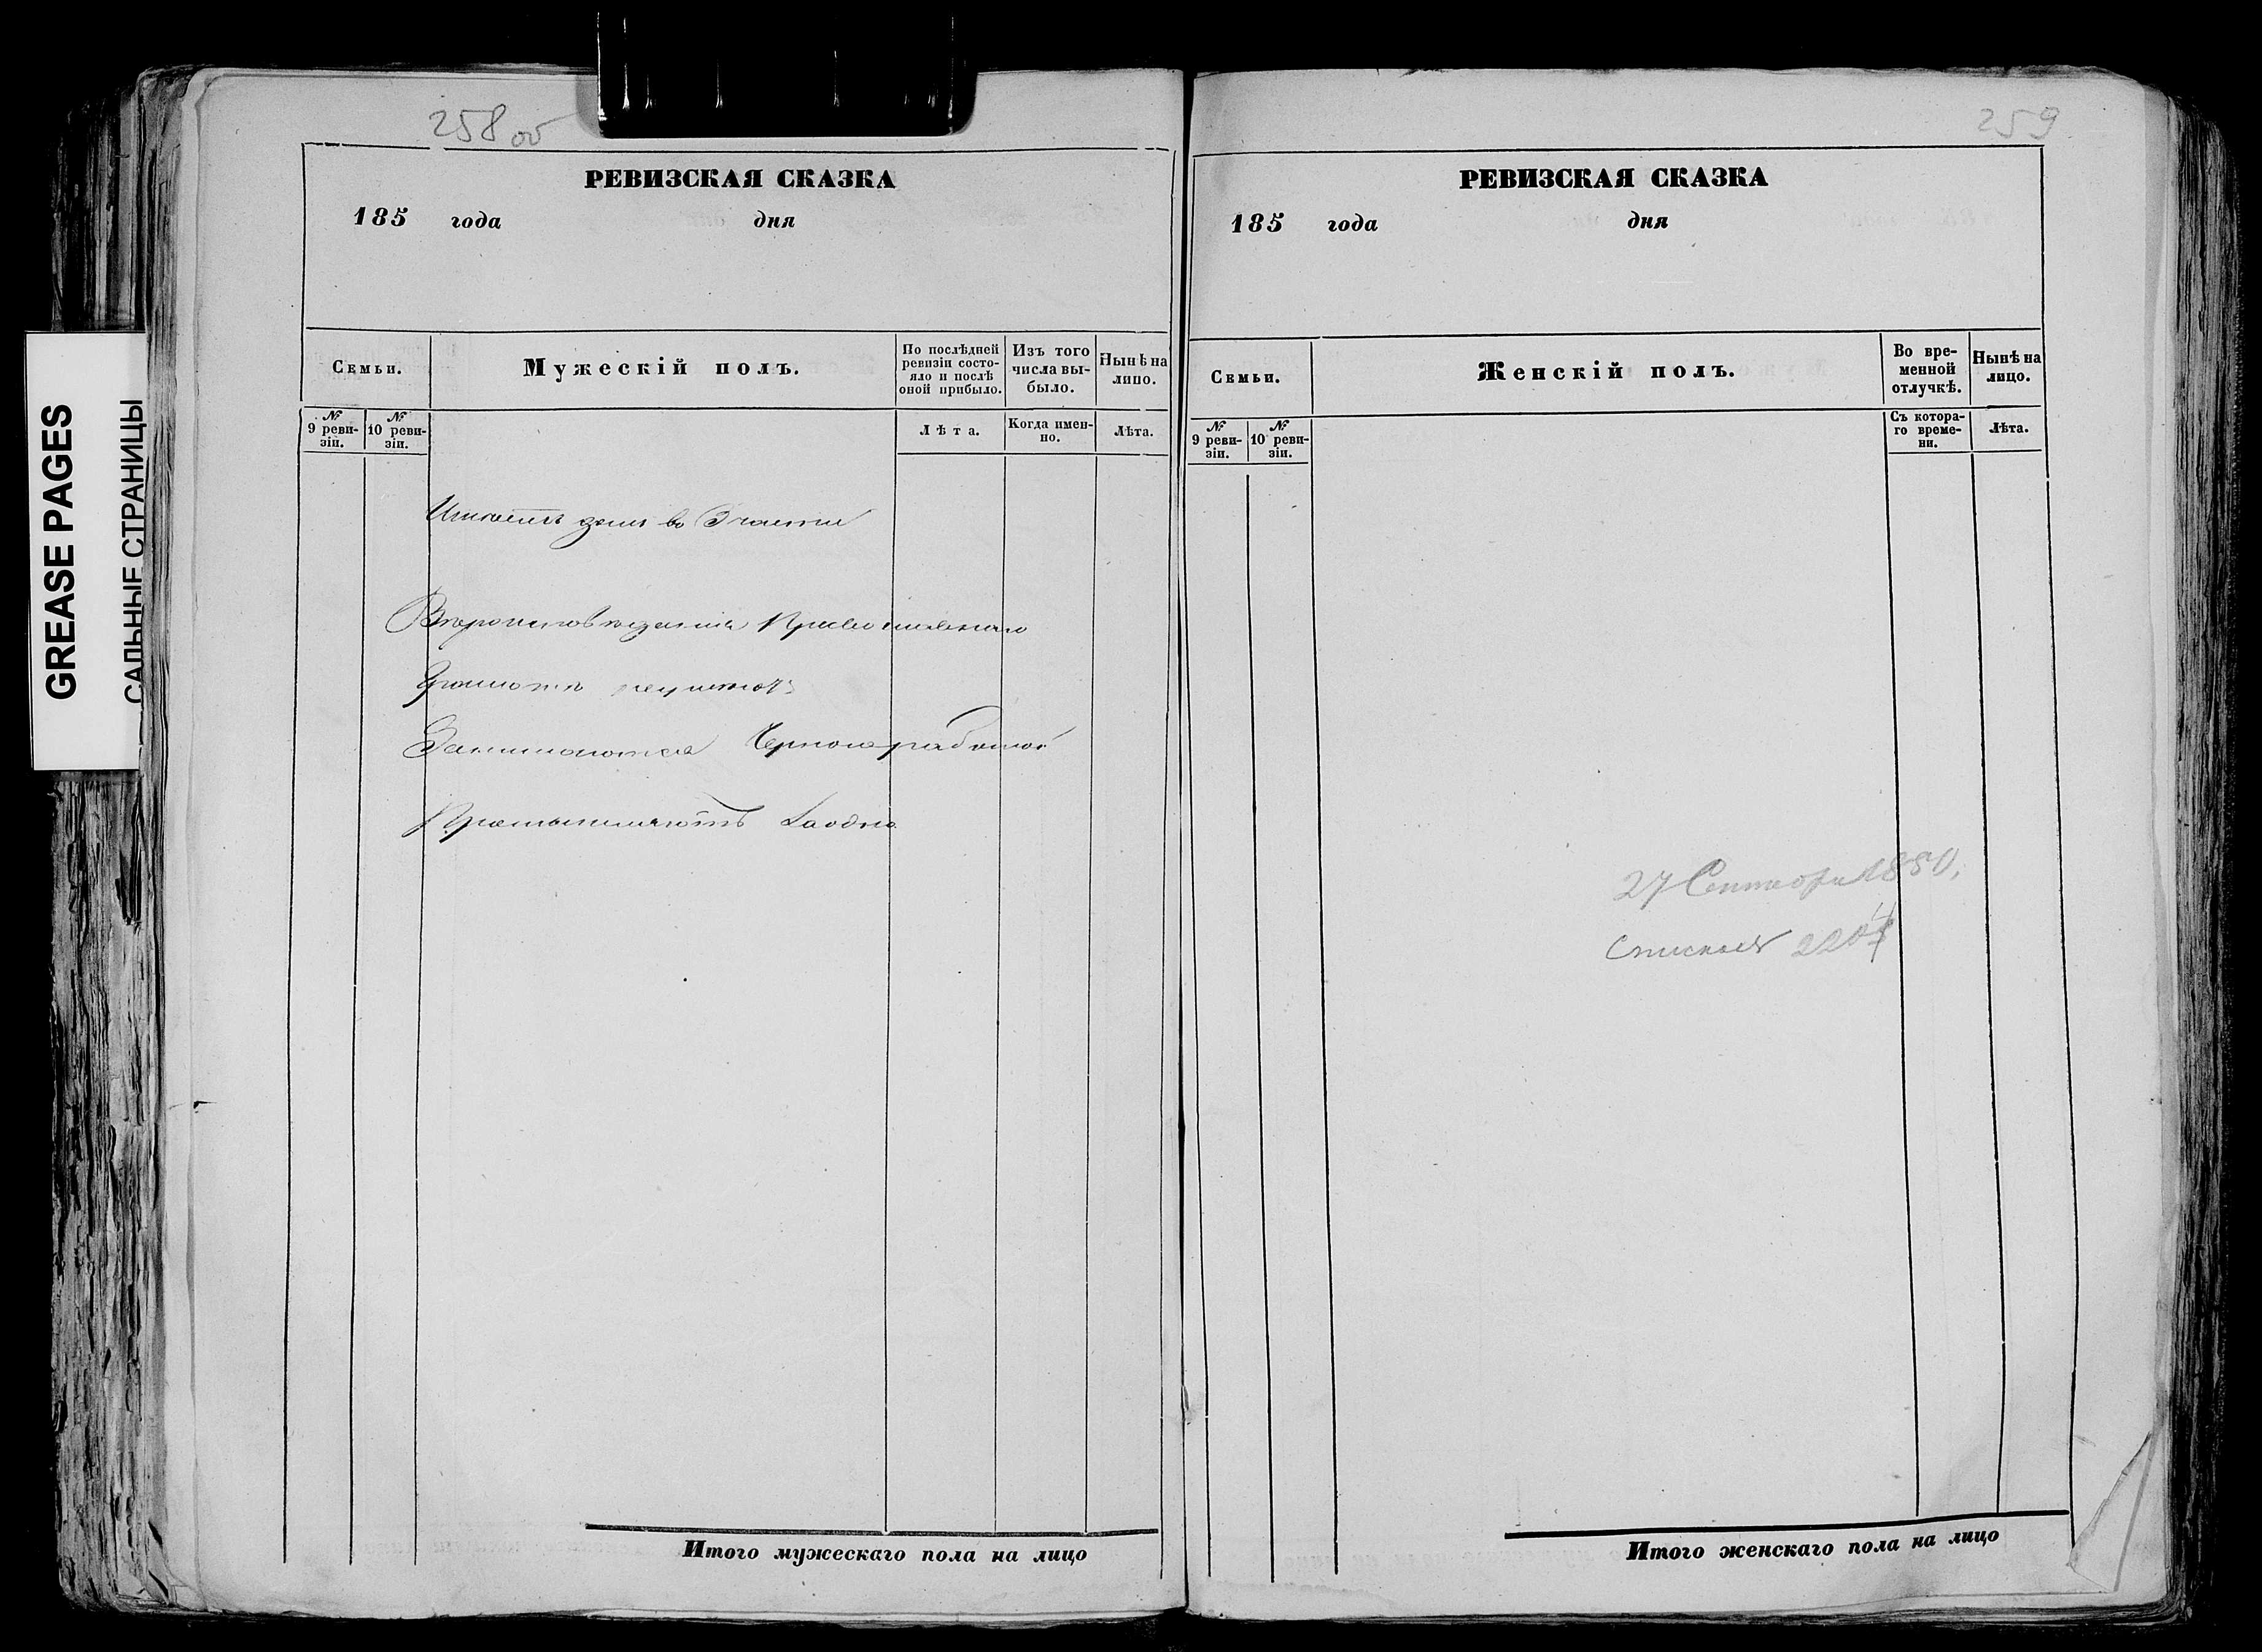 GREASE PAGES
САЛЬНЫЕ СТРАНИЦЫ
258 об
РЕВИЗСКАЯ СКАЗКА
185 года дня
Семьи.
Мужескій полъ.
По послѣдней ревизіи состояло и послѣ оной прибыло.
Изъ того числа выбыло.
Нынѣ на лицо.
№ 9 ревизіи.
№ 10 ревизіи.
Лѣта.
Когда именно.
Лѣта.
Имеетъ домъ во 3 части
Вероисповедания Православнаго
Грамоте неумеютъ
Занимаются Черной работой
Промышляютъ Заодно
Итого мужескаго пола на лицо
259
РЕВИЗСКАЯ СКАЗКА
185 года дня
Семьи.
Женскій полъ.
Во временной отлучкѣ.
Нынѣ на лицо.
№ 9 ревизіи.
№ 10 ревизіи.
Съ котораго времени.
Лѣта.
27 Сентября 1850,
Списков
Итого женскаго пола на лицо